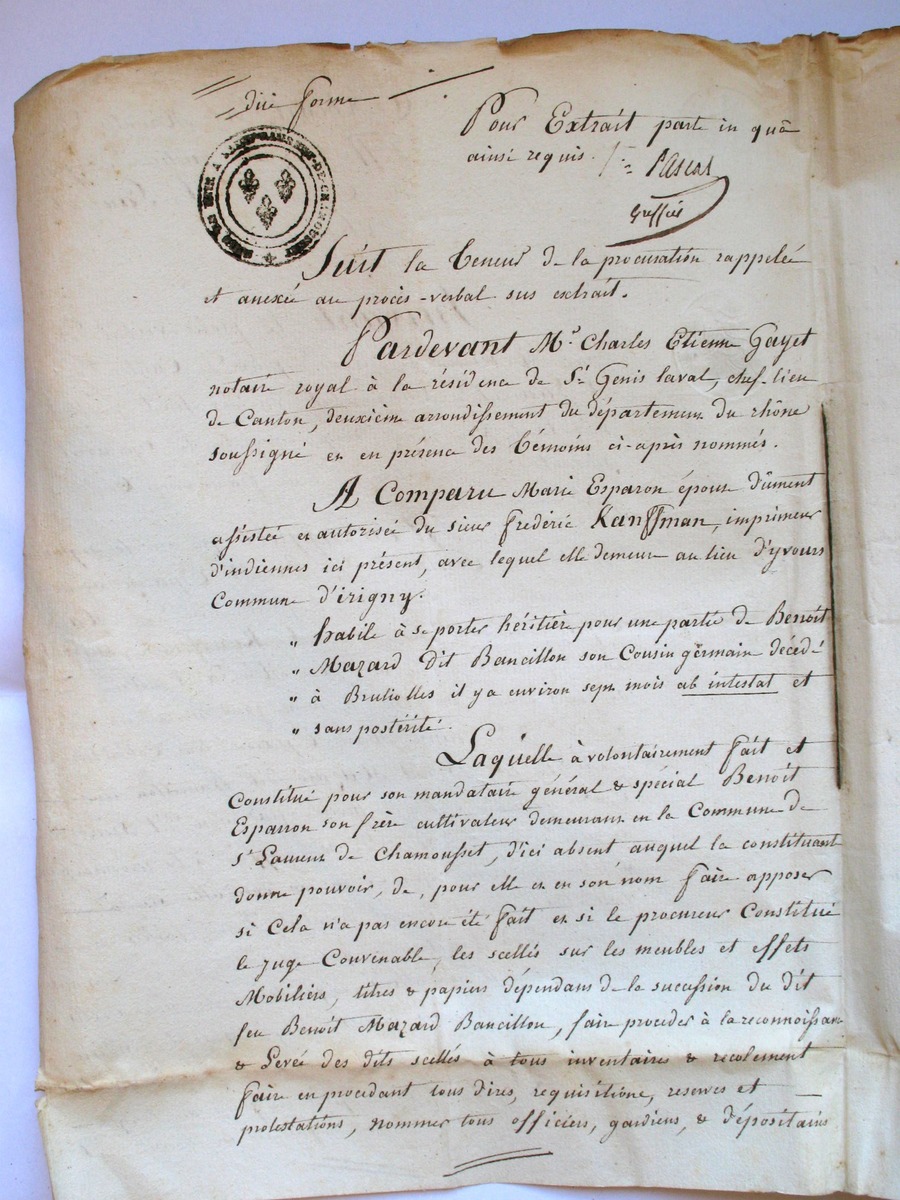 dite forme
Pour Extrait parte in quâ
ainsi requis.
Pascal
Greffier
Suit la teneur de la procuration rappelée
et anexée au procès-verbal sus extrait.
Pardevant Mr. Charles Etienne Gayet
notaire royal à la résidence de St. Genis laval, chef-lieu
de Canton, deuxième arrondissement du département du rhône
soussigné et en présence des témoins ci-après nommés.
A Comparu Marie Esparon épouse dûment
assistée et autorisée du sieur frédéric Kauffman, imprimeur
d'indiennes ici présent, avec lequel elle demeure au lieu d'yvours
Commune d'irigny.
" habile à se porter héritière pour une partie de Benoît
" Mazard dit Bancillon son Cousin germain décédé
" à Brullolles il y a environ sept mois ab intestat et
" sans postérité.
Laquelle à volontairement fait et
Constitué pour son mandataire général & spécial Benoît
Esparron son frère cultivateur demeurant en la Commune de
St Laurent de Chamousset, d'ici absent auquel la constituant
donne pouvoir, de, pour elle et en son nom faire apposer
si Cela n'a pas encore été fait et si le procureur Constitué
le juge Convenable, les scellés sur les meubles et effets
Mobiliers, titres & papiers dépendans de la sucession du dit
feu Benoît Mazard Bancillon, faire proceder à la reconnoissance
& Levée des dits scellés à tous inventaires & recolement
faire en procedant tous dires, requisitions, reserves et
protestations, nommer tous officiers, gardiens, & dépositaires